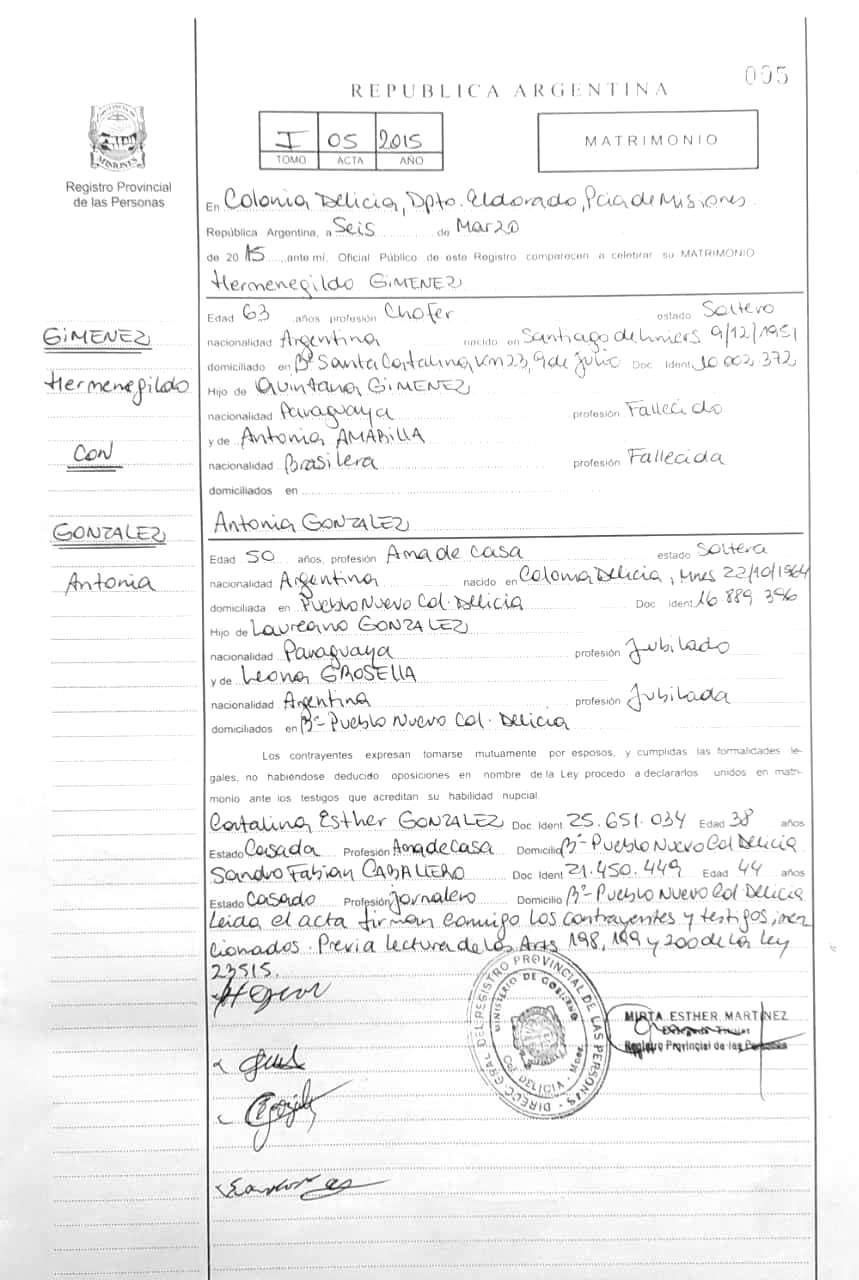 005
REPUBLICA ARGENTINA
I 05 2015
TOMO ACTA AÑO
MATRIMONIO
MISIONES
Registro Provincial
de las Personas
En Colonia Delicia, Dpto. Eldorado, Pcia de Misiones
República Argentina, a Seis de Marzo
de 2015 ante mí, Oficial Público de este Registro comparecen a celebrar su MATRIMONIO
Hermenegildo GIMENEZ
Edad 63 años profesión Chofer estado Soltero
nacionalidad Argentina nacido en Santiago de Liniers 9/12/1951
domiciliado en Bº Santa Catalina, Km 23, 9 de Julio Doc Ident 10 002 372
Hijo de Quintana GIMENEZ
nacionalidad Paraguaya profesión Fallecido
y de Antonia AMARILLA
nacionalidad Brasilera profesión Fallecida
domiciliados en
GIMENEZ
Hermenegildo
CON
GONZALEZ
Antonia
Antonia GONZALEZ
Edad 50 años, profesión Ama de Casa estado Soltera
nacionalidad Argentina nacido en Colonia Delicia, Mnes 22/10/1964
domiciliada en Pueblo Nuevo Col. Delicia Doc Ident 16 889 396
Hijo de Laureano GONZALEZ
nacionalidad Paraguaya profesión Jubilado
y de Leona GROSELLA
nacionalidad Argentina profesión Jubilada
domiciliados en Bº Pueblo Nuevo Col. Delicia
Los contrayentes expresan tomarse mutuamente por esposos, y cumplidas las formalidades le-
gales, no habiéndose deducido oposiciones en nombre de la Ley procedo a declararlos unidos en matri-
monio ante los testigos que acreditan su habilidad nupcial.
Catalina Esther GONZALEZ Doc Ident 25.651.034 Edad 38 años
Estado Casada Profesión Ama de casa Domicilio Bº Pueblo Nuevo Col Delicia
Sandro Fabian CABALLERO Doc Ident 21.450.449 Edad 44 años
Estado Casado Profesión Jornalero Domicilio Bº Pueblo Nuevo Col Delicia
Leida el acta firman conmigo los contrayentes y testigos men
cionados. Previa lectura de los Arts 198, 199 y 200 de la Ley
23515.
DIRECC. GRAL DEL REGISTRO PROVINCIAL DE LAS PERSONAS
MINISTERIO DE GOBIERNO
Col. DELICIA
MIRTA ESTHER MARTINEZ
Registro Provincial de las Personas